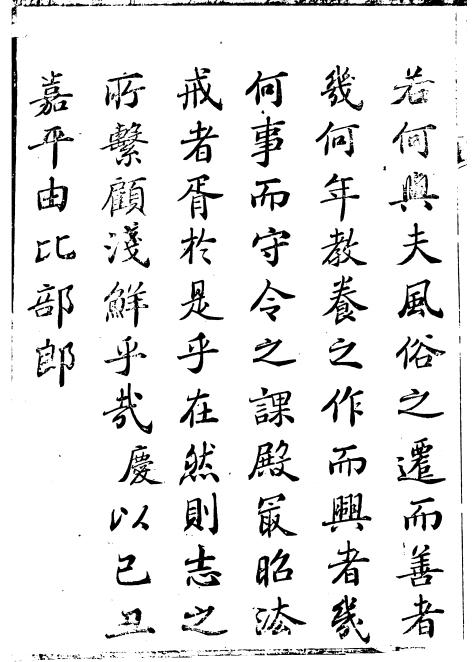 若何與夫風俗之遷而善者
幾何年教養之作而興者幾
何事而守令之課殿最昭法
戒者胥於是乎在然則志之
所繫顧淺鮮乎哉慶以己丑
嘉平由比部郎